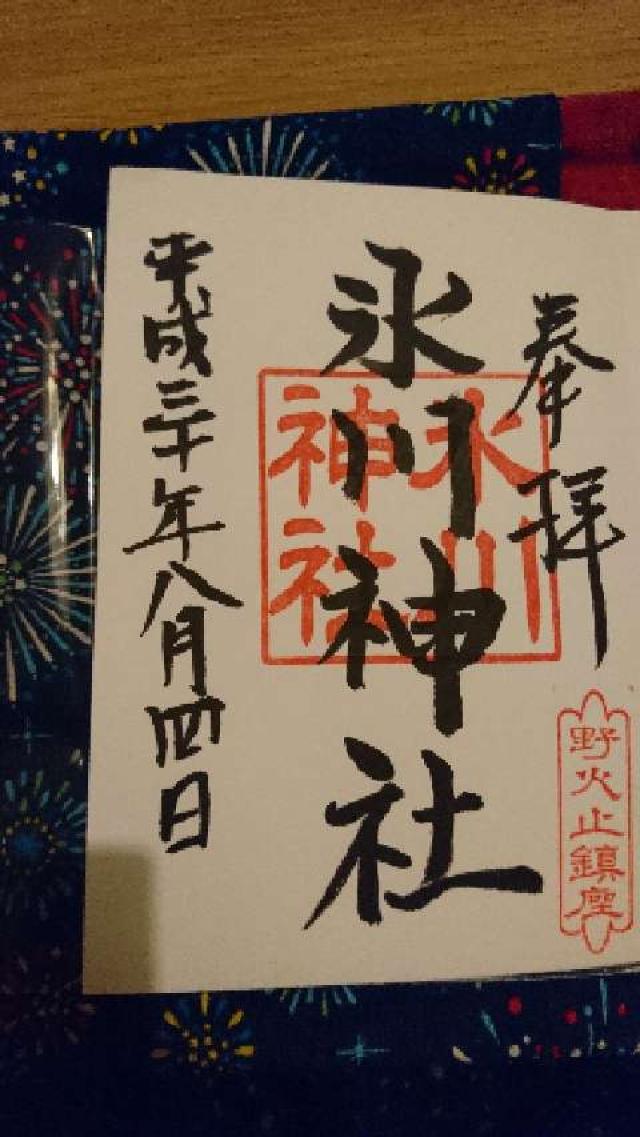 奉拝
氷川神社
氷川神社
野火止鎮座
平成三十年八月四日